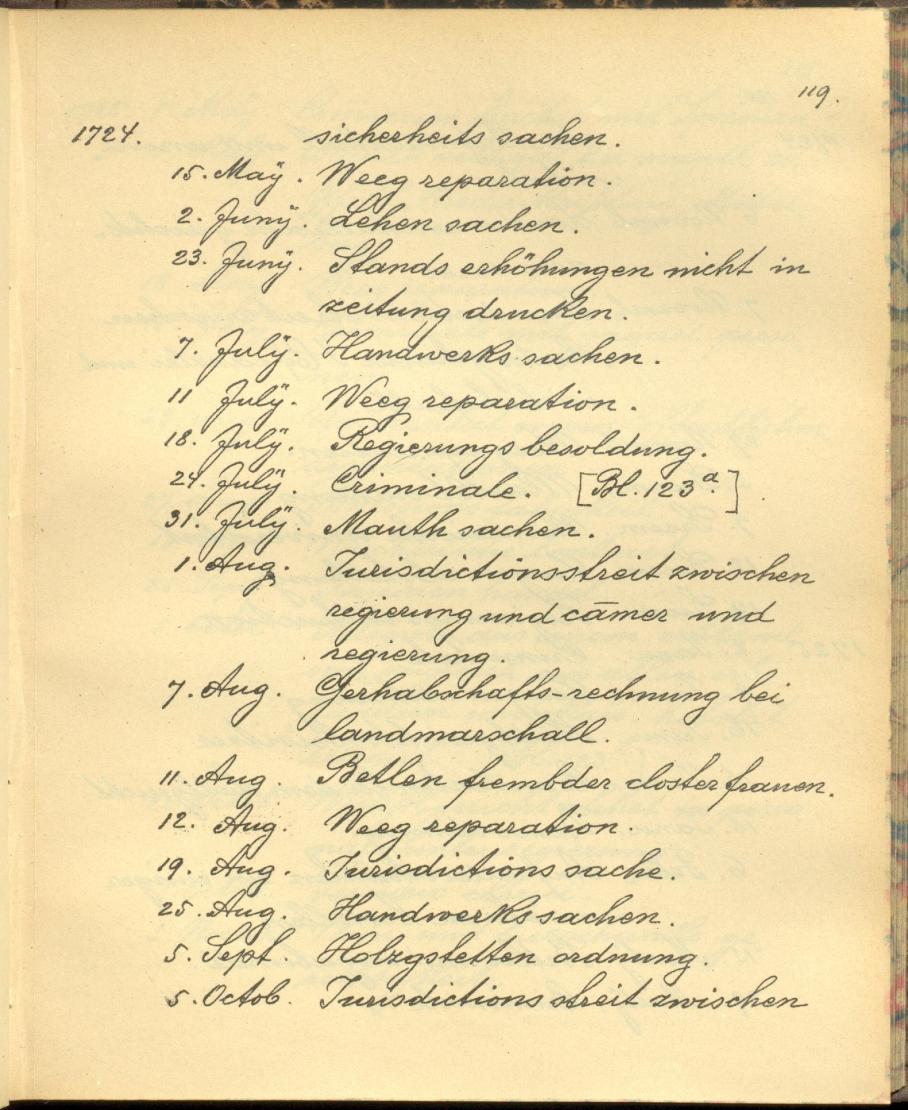 119.
1724. sicherheits sachen.
15. Maÿ. Weeg reparation.
2. Junÿ. Lehen sachen.
23. Junÿ. Stands erhöhungen nicht in
zeitung drucken.
7. Julÿ. Handwerks sachen.
11 Julÿ. Weeg reparation.
18. Julÿ. Regierungs besoldung.
24. Julÿ. Criminale. [Bl. 123a.]
31. Julÿ. Mauth sachen.
1. Aug. Jurisdictionsstreit zwischen
regierung und cāmer und
regierung.
7. Aug. Gerhabschafts-rechnung bei
landmarschall.
11. Aug. Betlen frembder closterfrauen.
12. Aug. Weeg reparation.
19. Aug. Jurisdictions sache.
25. Aug. Handwerks sachen.
5. Sept. Holzgstetten ordnung.
5. Octob. Jurisdictions streit zwischen